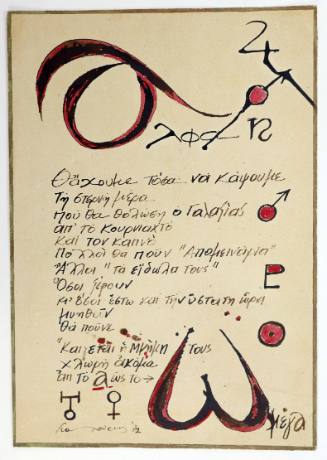 άλφα
Θἄχουμε τόσα να κάψουμε
Τη στερνή μέρα
που θα θολώση ο Γαλαξίας
απ' το κουρνιαχτό
και τον καπνό
Πολλοί θα πουν "Απομεινάρια"
Ἄλλοι "τα είδωλα τους"
Ὅσοι ξέρουν
κι' ὅσοι ἔστω και την ὕστατη ὥρα
μυηθούν
θα πούνε
"Καίγεται ἡ μνήμη τους
χλωρή ἀκόμα
απ το α ως το →
ω μέγα